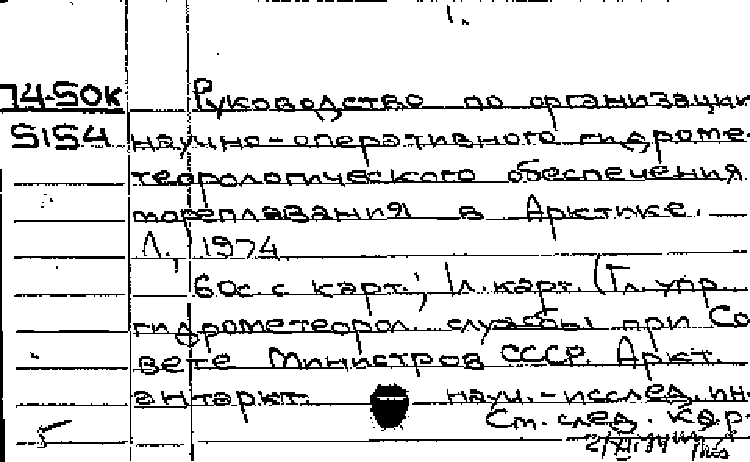 1.
74-50К
5154
Руководство по организации
научно-оперативного гидроме-
теорологического обеспечения
мореплавания в Арктике. —
Л., 1974
60с. с карт.; 1л. карт. (Гл. упр.
гидрометеорол. службы при Со-
вете Министров СССР. Аркт.
антаркт. науч.-исслед. ин-
См. след. кар
5